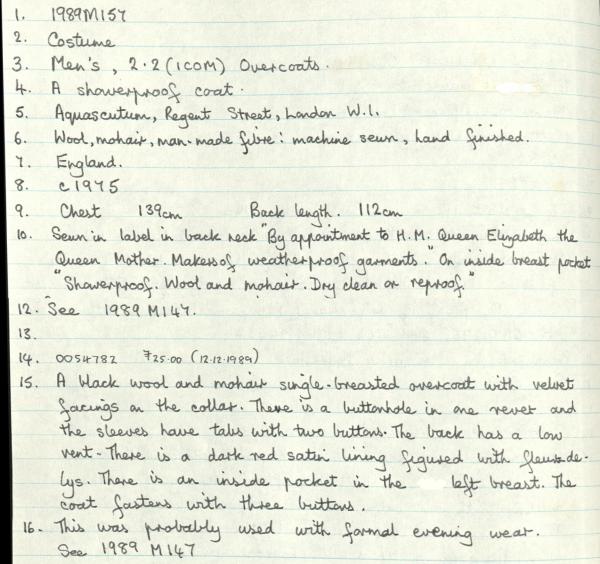 1. 1989M157
2. Costume
3. Men's, 2.2 (ICOM) Overcoats.
4. A showerproof coat.
5. Aquascutum, Regent Street, London W.1.
6. Wool, mohair, man-made fibre: machine sewn, hand finished.
7. England.
8. c1975
9. Chest 139cm Back length. 112cm
10. Sewn in label in back neck "By appointment to H.M. Queen Elizabeth the
Queen Mother. Makers of weatherproof garments." On inside breast pocket
"Showerproof. Wool and mohair. Dry clean or reproof."
12. See 1989 M147.
13.
14. 0054782 £25.00 (12.12.1989)
15. A black wool and mohair single-breasted overcoat with velvet
facings on the collar. There is a buttonhole in one rever and
the sleeves have tabs with two buttons. The back has a low
vent. There is a dark red satin lining figured with fleurs-de-
lys. There is an inside pocket in the left breast. The
coat fastens with three buttons.
16. This was probably used with formal evening wear.
See 1989 M147